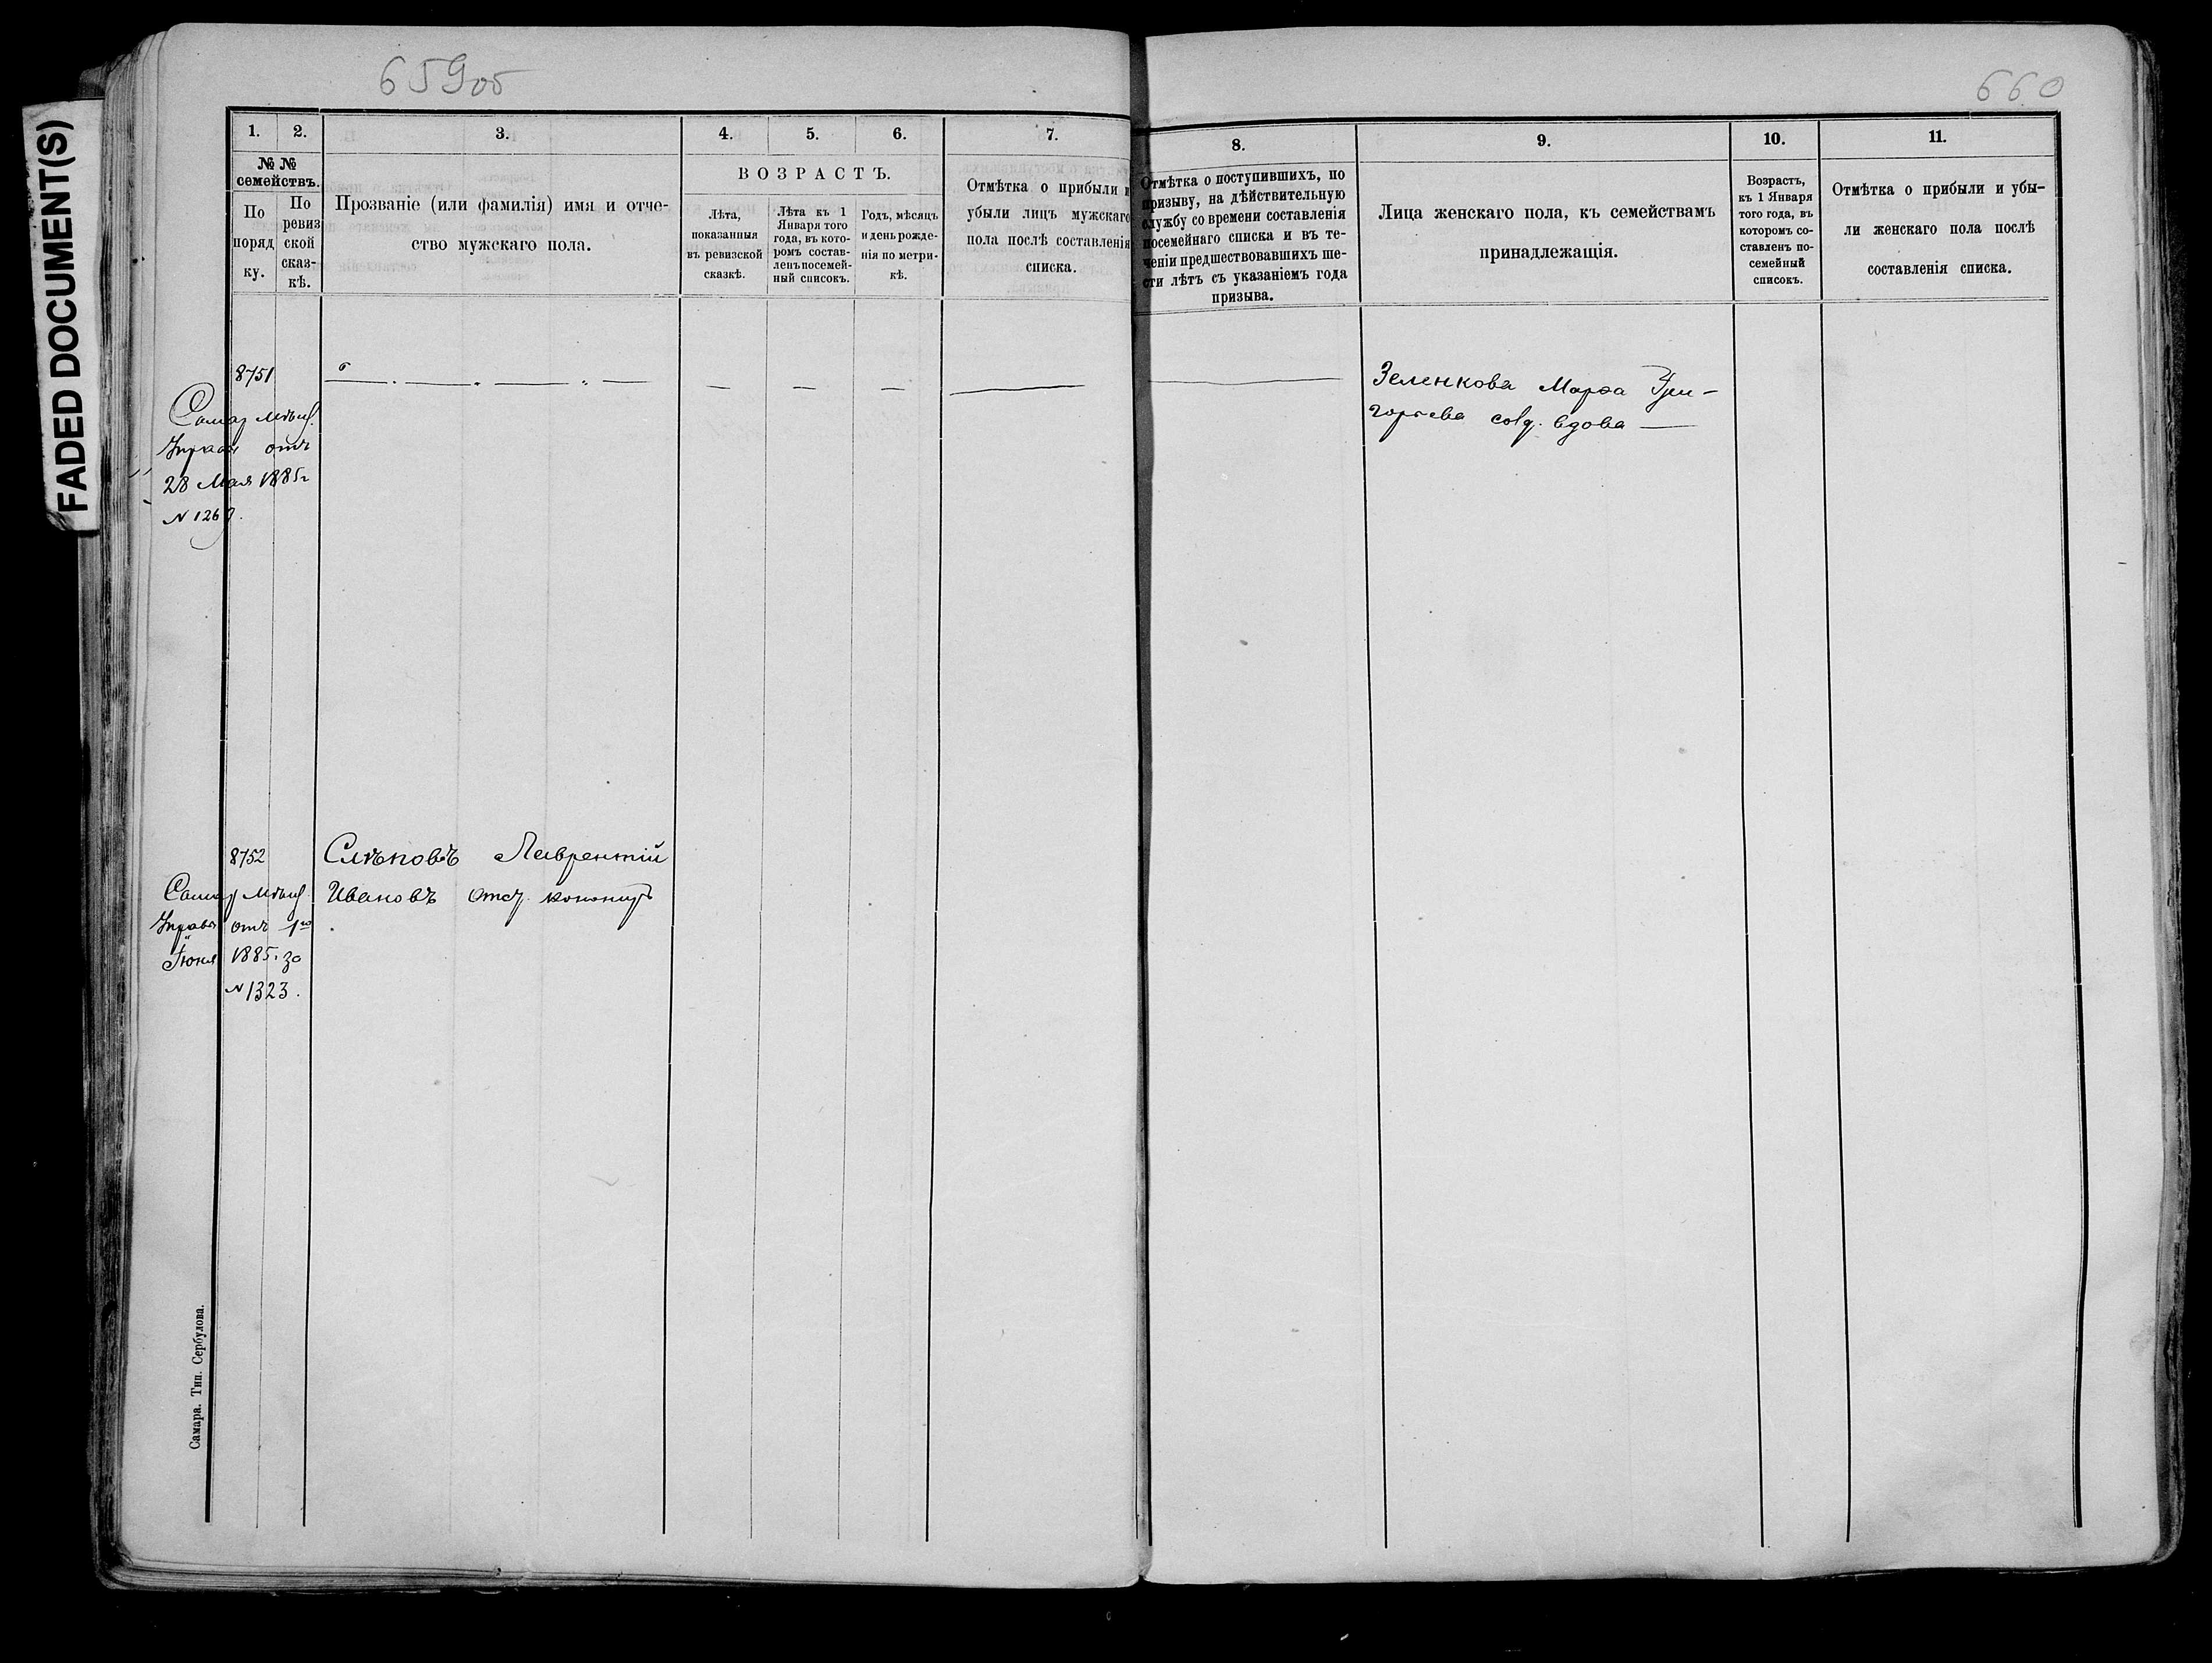 659об
660
FADED DOCUMENT(S)
1.
2.
3.
4.
5.
6.
7.
8.
9.
10.
11.
№ №
семействъ.
По
поряд
ку.
По
ревиз
ской
сказ-
кѣ.
Прозваніе (или фамилія) имя и отче-
ство мужскаго пола.
ВОЗРАСТЪ.
Лѣта,
показанныя
въ ревизской
сказкѣ.
Лѣта къ 1
Января того
года, въ кото-
ромъ состав-
ленъ посемей-
ный списокъ.
Годъ, мѣсяцъ
и день рожде-
нія по метри-
кѣ.
Отмѣтка о прибыли и
убыли лицъ мужскаго
пола послѣ составленія
списка.
Отмѣтка о поступившихъ, по
призыву, на дѣйствительную
службу со времени составленія
посемейнаго списка и въ те-
ченіи предшествовавшихъ ше-
сти лѣтъ съ указаніемъ года
призыва.
Лица женскаго пола, къ семействамъ
принадлежащія.
Возрастъ,
къ 1 Января
того года, въ
которомъ со-
ставленъ по-
семейный
списокъ.
Отмѣтка о прибыли и убы-
ли женскаго пола послѣ
составленія списка.
8751
Самар Мѣщ.
отъ
28 Мая 1885 г
N 1269.
Зеленкова Марѳа Гри-
горьева солд. вдова —
8752
Слѣповъ Лаврентій
Ивановъ отст.
Самар Мѣщ.
Управы отъ 1го
Іюня 1885. за
N 1323.
Самара. Тип. Сербулова.